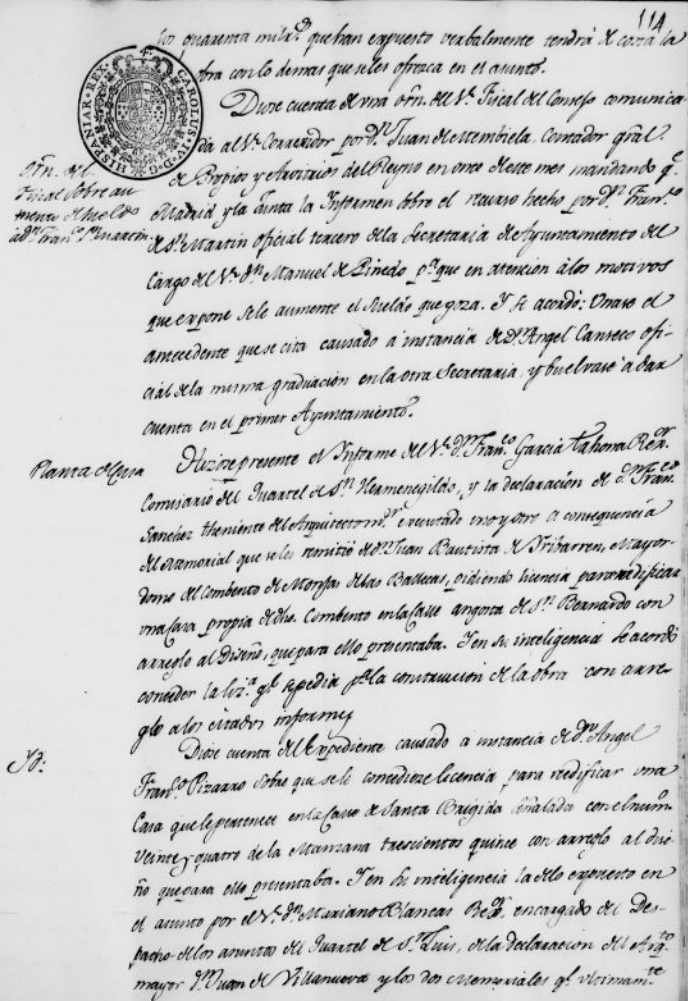 114
los quarenta mil r.^s que han expuesto verbalmente tendrá de costa la
obra con lo demas que se les ofrezca en el asunto.
HISPANIAR. REX. CAROLUS. IV. D. G.
Diose cuenta de una orn. del S.^r Fiscal del Consejo comunica-
da al S.^r Corregidor por D.^n Juan de Membiela, Contador gral.
de Propios y Arvitrios del Reyno en once de este mes mandando q.^e
Orn. del
Fiscal sobre au
mento de sueldo
a D.^n Fran.^co S.^n Martin.
Madrid y la Junta la Informen sobre el recurso hecho por D.^n Fran.^co
de S.^n Martin oficial tercero de la Secretaria de Ayuntamiento del
Cargo del S.^r D.^n Manuel de Pinedo p.^a que en atencion á los motivos
que expone se le aumente el sueldo que goza. Y se acordó: Unase el
antecedente que se cita causado á instancia de D.^n Angel Canseco ofi-
cial de la misma graduacion en la otra Secretaria, y buelvase á dar
cuenta en el primer Ayuntamiento.
Planta de Casa
Hizose presente el Informe del S.^r D.^n Fran.^co Garcia Tahona Rex.^or
Comisario del Quartel de S.^n Hermenegildo, y la declaracion de D.^n Fran.^co
Sanchez theniente del Arquitecto m.^or executado uno y otro á consequencia
del Memorial que se les remitió de D.^n Juan Bautista de Yribarren, Mayor-
domo del Combento de Monjas de las Ballecas, pidiendo licencia para redificar
una Casa propia de dho. Combento en la Calle angosta de S.^n Bernardo con
arreglo al Diseño, que para ello presentaba. Y en su inteligencia se acordó
conceder la liz.^a q.^e se pedia p.^a la construccion de la obra con arre-
glo a los citados informes
Yd:
Diose cuenta del Expediente causado á instancia de D.^n Angel
Fran.^co Pizarro sobre que se le concediese licencia para redificar una
Casa que le pertenece en la Calle de Santa Brigida señalada con el num.^o
veinte y quatro de la Manzana trescientos quince con arreglo al dise-
ño que para ello presentaba. Y en su inteligencia la de lo expuesto en
el asunto por el S.^r D.^n Mariano Blancas Rex.^or encargado del Des-
pacho de los asuntos del Quartel de S.^n Luis, de la declaracion del Arq.^to
mayor D.^n Juan de Villanueva y los dos Memoriales q.^e ultimam.^te